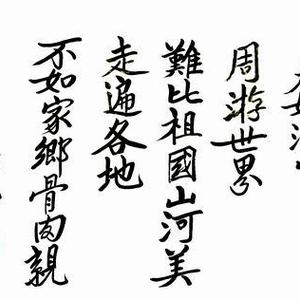 周游世界
難比祖國山河美
走遍各地
不如家鄉骨肉親